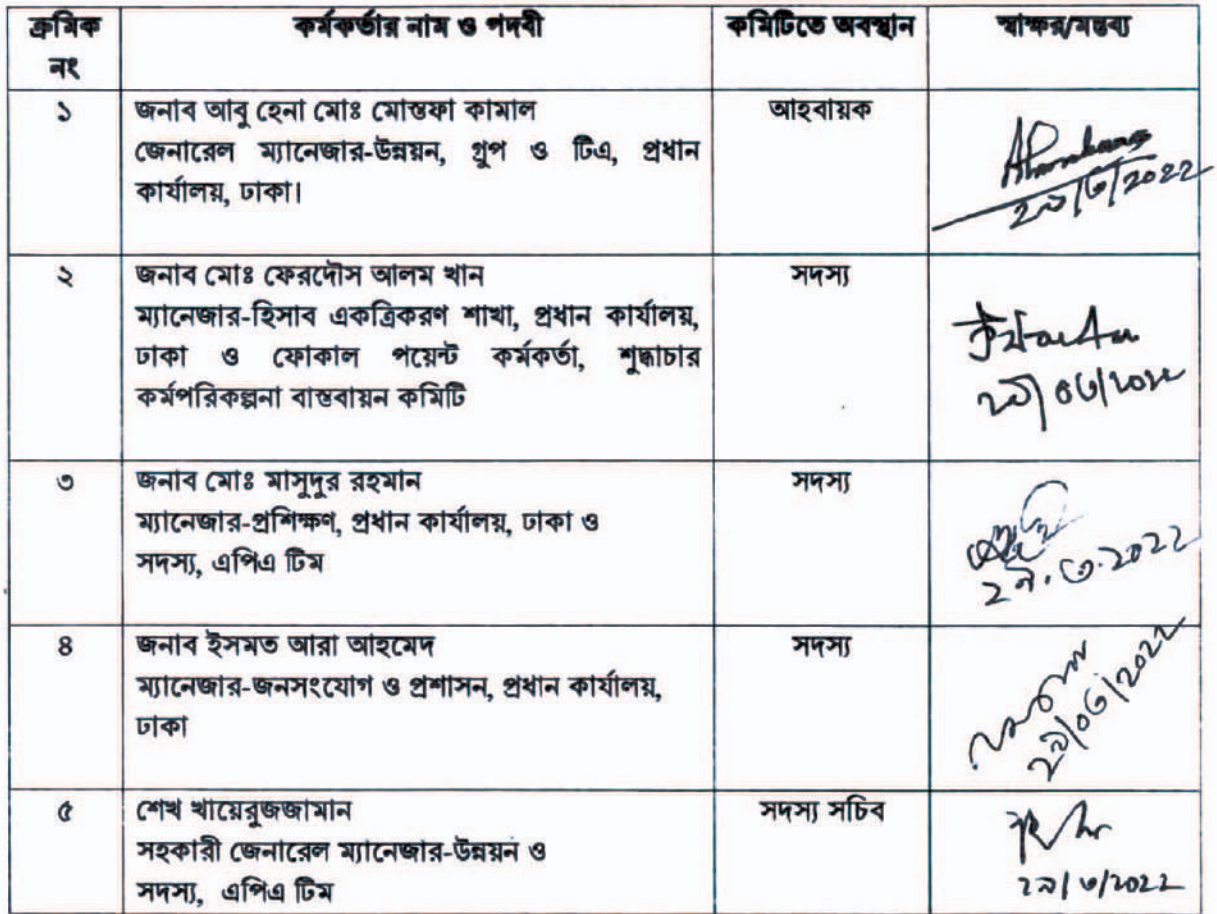 ক্রমিক নং
কর্মকর্তার নাম ও পদবী
কমিটিতে অবস্থান
স্বাক্ষর/মন্তব্য
১
জনাব আবু হেনা মোঃ মোস্তফা কামাল
জেনারেল ম্যানেজার-উন্নয়ন, গ্রুপ ও টিএ, প্রধান
কার্যালয়, ঢাকা।
আহবায়ক
২৯/৩/2022
২
জনাব মোঃ ফেরদৌস আলম খান
ম্যানেজার-হিসাব একত্রিকরণ শাখা, প্রধান কার্যালয়,
ঢাকা ও ফোকাল পয়েন্ট কর্মকর্তা, শুদ্ধাচার
কর্মপরিকল্পনা বাস্তবায়ন কমিটি
সদস্য
২৯/০৩/২০২২
৩
জনাব মোঃ মাসুদুর রহমান
ম্যানেজার-প্রশিক্ষণ, প্রধান কার্যালয়, ঢাকা ও
সদস্য, এপিএ টিম
সদস্য
২৯.৩.২০২২
৪
জনাব ইসমত আরা আহমেদ
ম্যানেজার-জনসংযোগ ও প্রশাসন, প্রধান কার্যালয়,
ঢাকা
সদস্য
২৯/০৩/২০২২
৫
শেখ খায়েরুজজামান
সহকারী জেনারেল ম্যানেজার-উন্নয়ন ও
সদস্য, এপিএ টিম
সদস্য সচিব
২৯/৩/২০২২